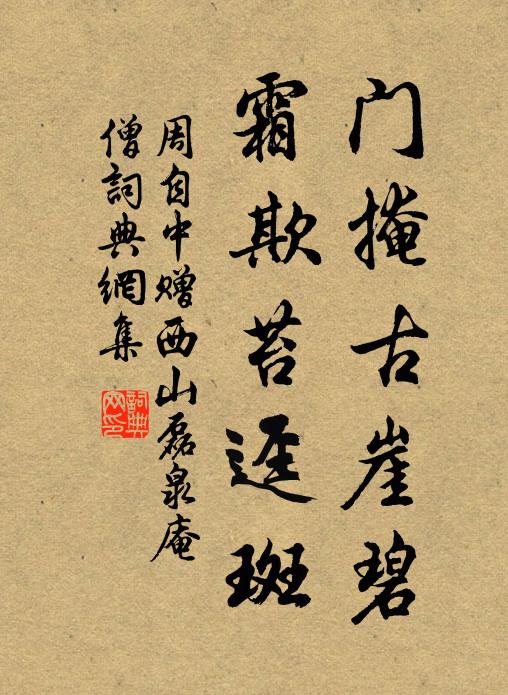 门掩古崖碧
霜欺苔迳斑
周自中赠西山磊泉庵
僧詞典網集
詞典网印